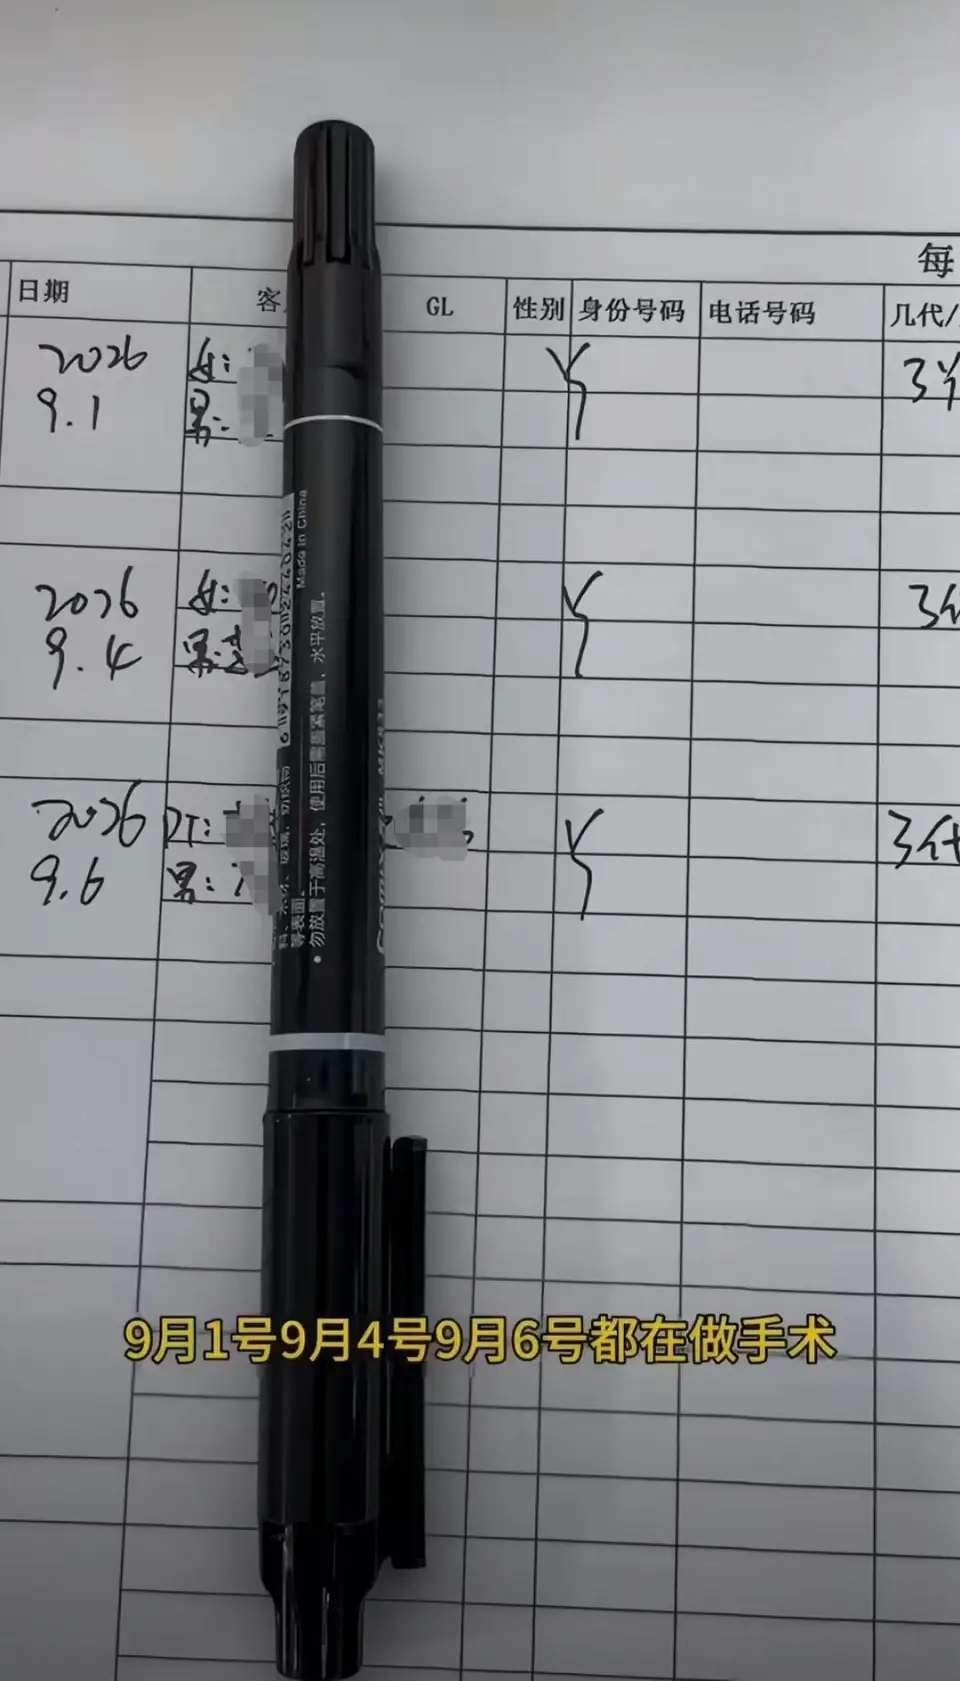 每
日期
客
GL
性别
身份号码
电话号码
几代/
2026
9.1
女:
男:
Y
3
2026
9.4
女:
男:
Y
3代
2026
9.6
DT:
男:
Y
3代
Made in China
水平放置。
勿放置于高温处，使用后需盖紧笔盖，
等表面。
9月1号9月4号9月6号都在做手术